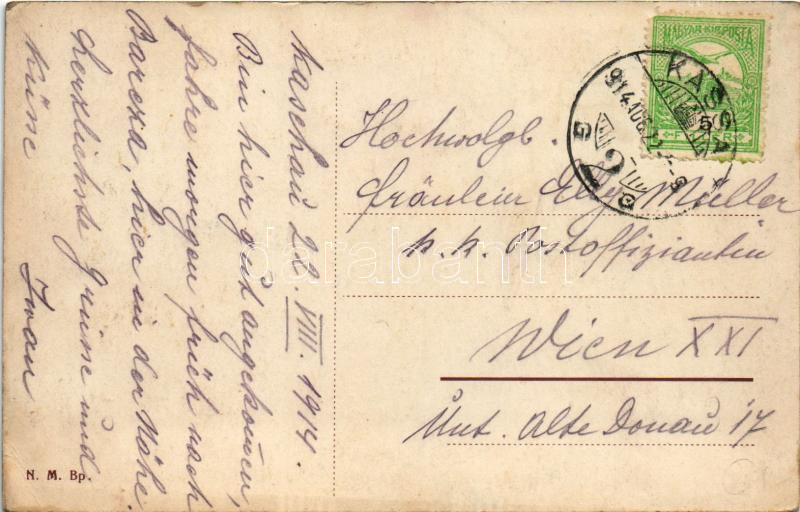 Kaschau 22 VIII. 1914.
Bin hier gut angekom̄en,
fahre morgen früh nach
Barcza, hier in der Nähe.
Herzlichste Grüsse und
Küsse
Iwan
Hochwolgb.
Fräulein Elly Müller
k. k. Postoffiziantin
Wien XXI
Unt. Alte Donau 17
MAGYAR KIR. POSTA
5
KASSA
914 AUG. 22
2
N. M. Bp.
darabanth